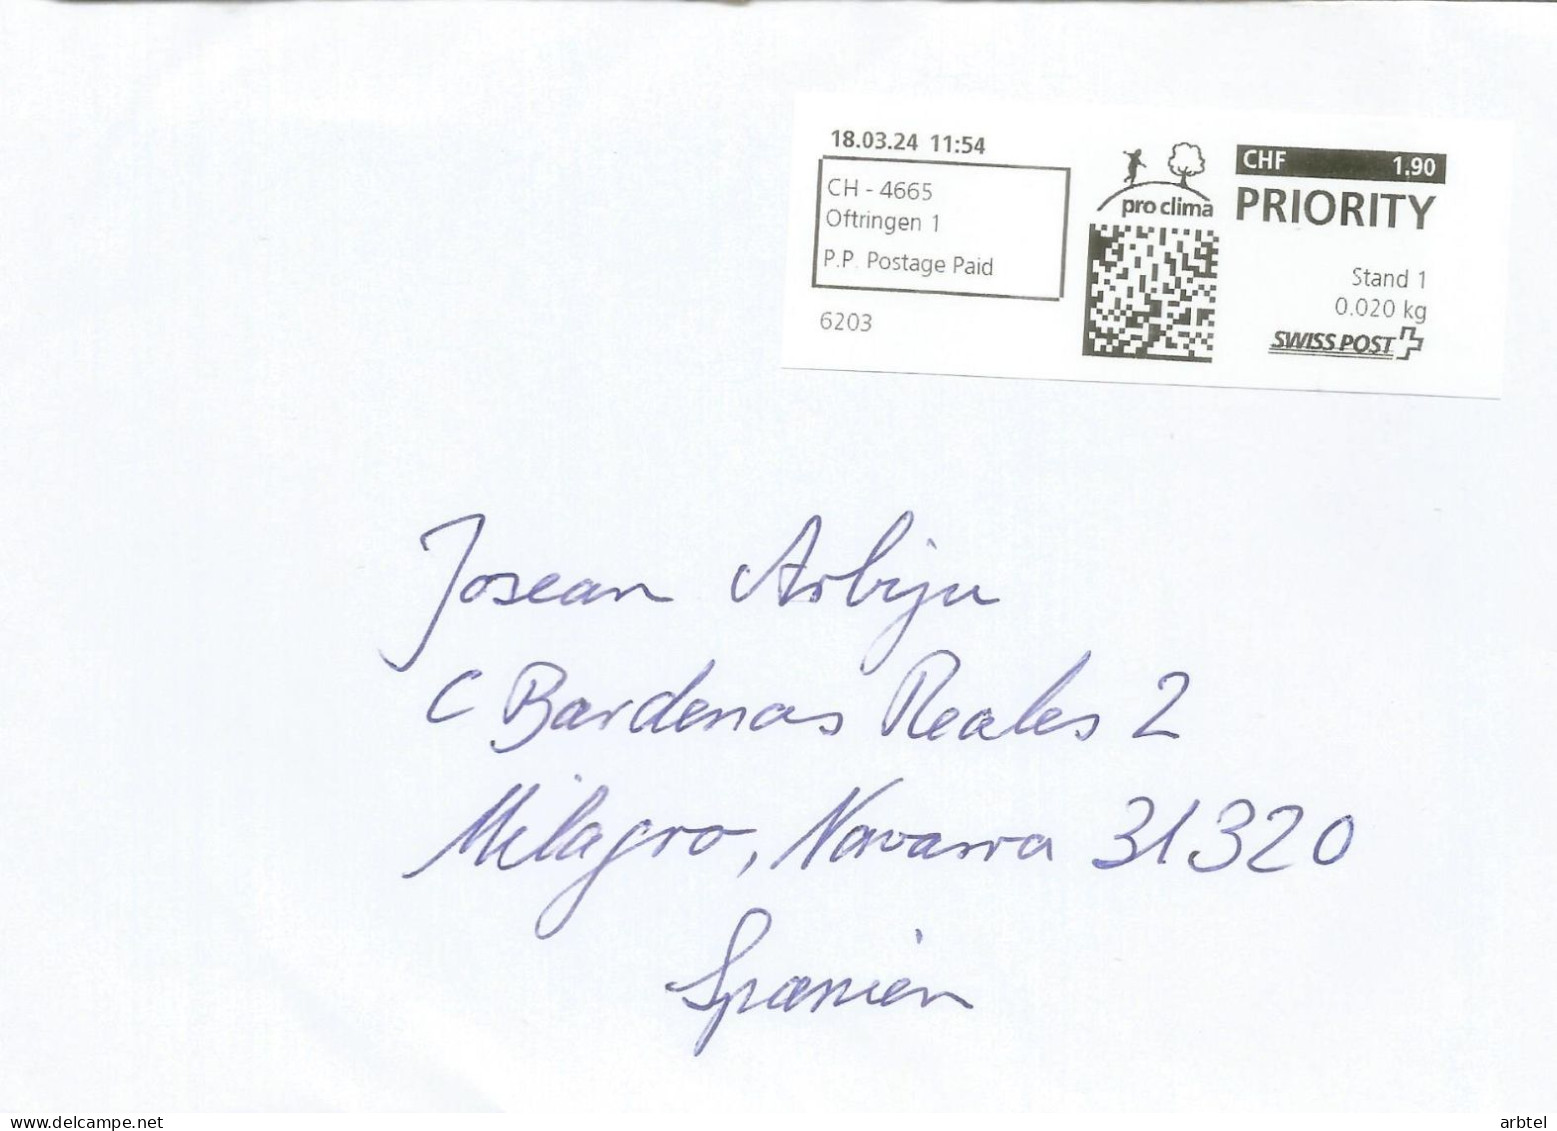 18.03.24 11:54
CH - 4665
Oftringen 1
P.P. Postage Paid
6203
pro clima
CHF 1.90
PRIORITY
Stand 1
0.020 kg
SWISS POST
Josean Arbiju
C Bardenas Reales 2
Milagro, Navarra 31320
Spanien
www.delcampe.net
arbtel